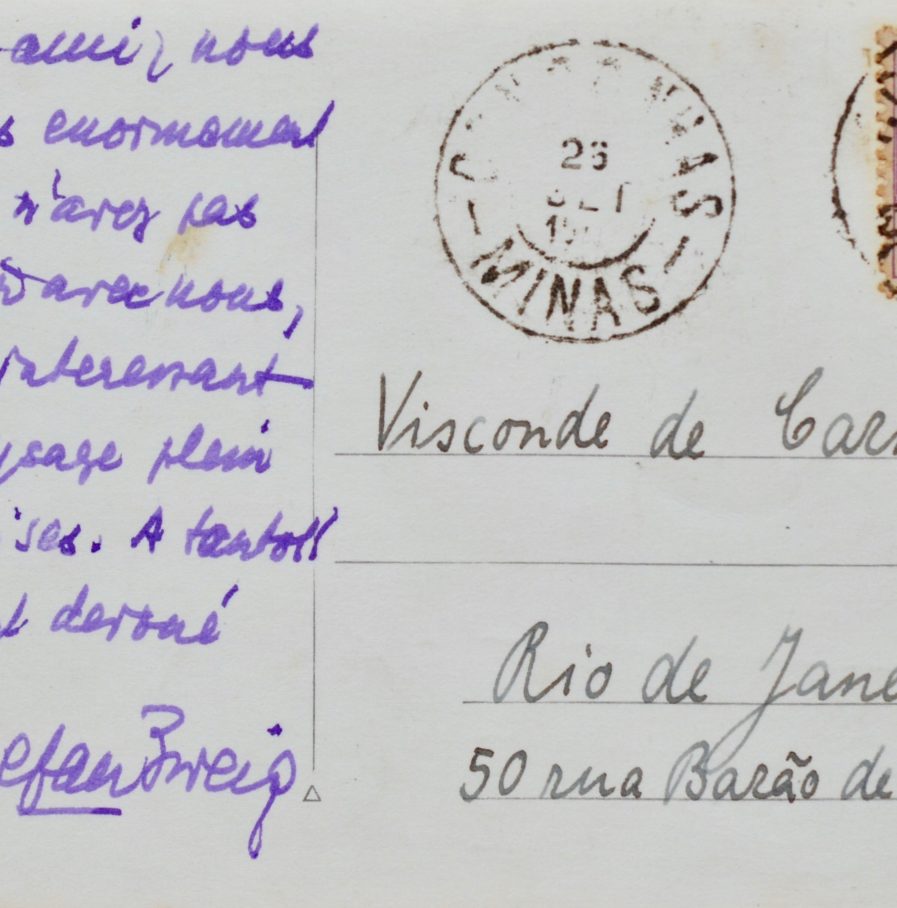 ami, nous
enormement
n'avez pas
avec nous,
interessant
plein
A tantôt
devoué
Stefan Zweig
26
SET
MINAS
Visconde de Car
Rio de Jane
50 rua Barão de